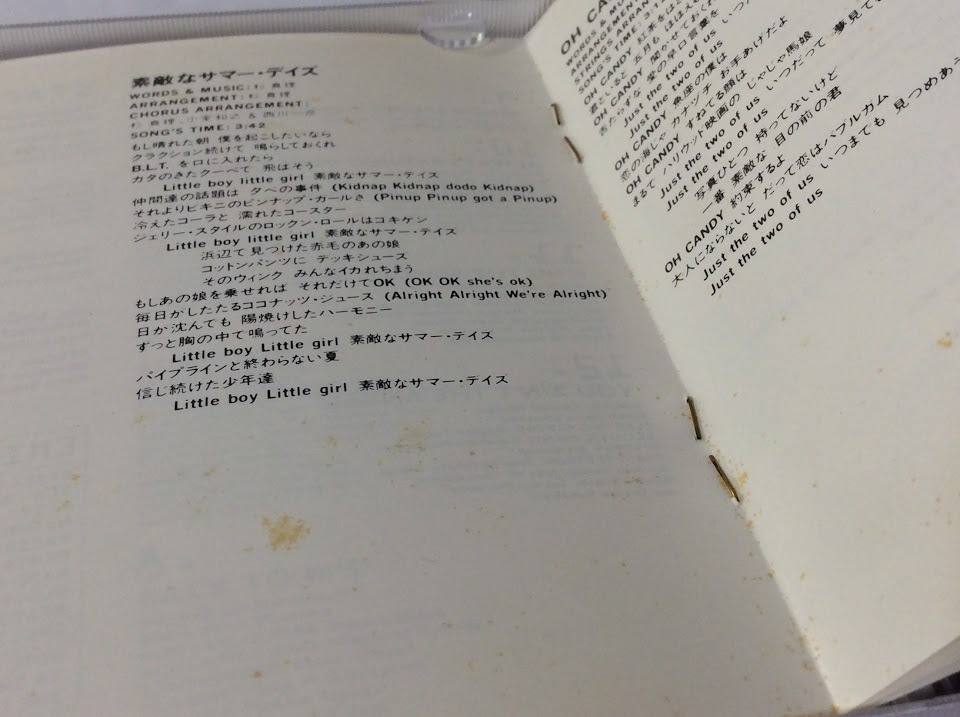 素敵なサマー・デイズ
WORDS & MUSIC: 杉 真理
ARRANGEMENT: 杉 真理
CHORUS ARRANGEMENT:
杉 真理、小室和之 &
SONG'S TIME: 3:42
もし晴れた朝 僕を起こしたいなら
クラクション続けて 鳴らしておくれ
B.L.T. を口に入れたら
カタのきたクーペで 飛ばそう
Little boy little girl 素敵なサマー・デイズ
仲間達の話題は 夕べの事件 (Kidnap Kidnap dodo Kidnap)
それよりビキニのピンナップ・ガールさ (Pinup Pinup got a Pinup)
冷えたコーラと 濡れたコースター
ジェリー・スタイルのロックン・ロールはゴキゲン
Little boy little girl 素敵なサマー・デイズ
浜辺で見つけた赤毛のあの娘
コットンパンツに デッキシューズ
そのウィンク みんなイカれちまう
もしあの娘を乗せれば それだけでOK (OK OK she's ok)
毎日がしたたるココナッツ・ジュース (Alright Alright We're Alright)
日が沈んでも 陽焼けしたハーモニー
ずっと胸の中で鳴ってた
Little boy Little girl 素敵なサマー・デイズ
パイプラインと終わらない夏
信じ続けた少年達
Little boy Little girl 素敵なサマー・デイズ
OH CANDY
WORDS & MUSIC
ARRANGEMENT:
STRINGS ARRANGEMENT
SONG'S TIME: 3:1
OH CANDY 紅茶をは
妻といると 五月も
OH CANDY 聞かせておくれ
舌たらずな 愛の早口言葉を
Just the two of us いつ
Just the two of us
OH CANDY 魚座の僕は
恋の海じゃ カナヅチ お手あげだよ
OH CANDY すねてる顔は
まるで ハリウッド映画の じゃじゃ馬娘
Just the two of us いつだって 夢見てい
Just the two of us
写真ひとつ 持ってないけど
一番 素敵な 目の前の君
OH CANDY 約束するよ
大人にならないと だって恋はバブルガム
Just the two of us いつまでも 見つめあ
Just the two of us